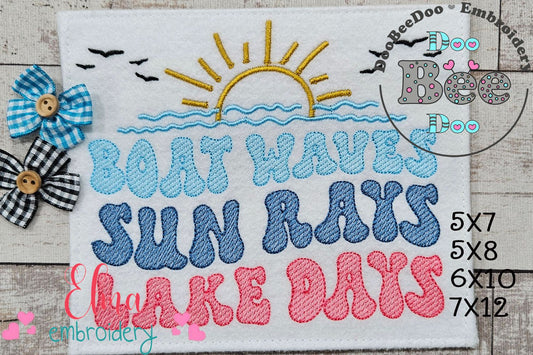 DooBeeDoo • Embroidery
Doo
Bee
Doo
BOAT WAVES
SUN RAYS
LAKE DAYS
5X7
5X8
6X10
7X12
Elma
embroidery